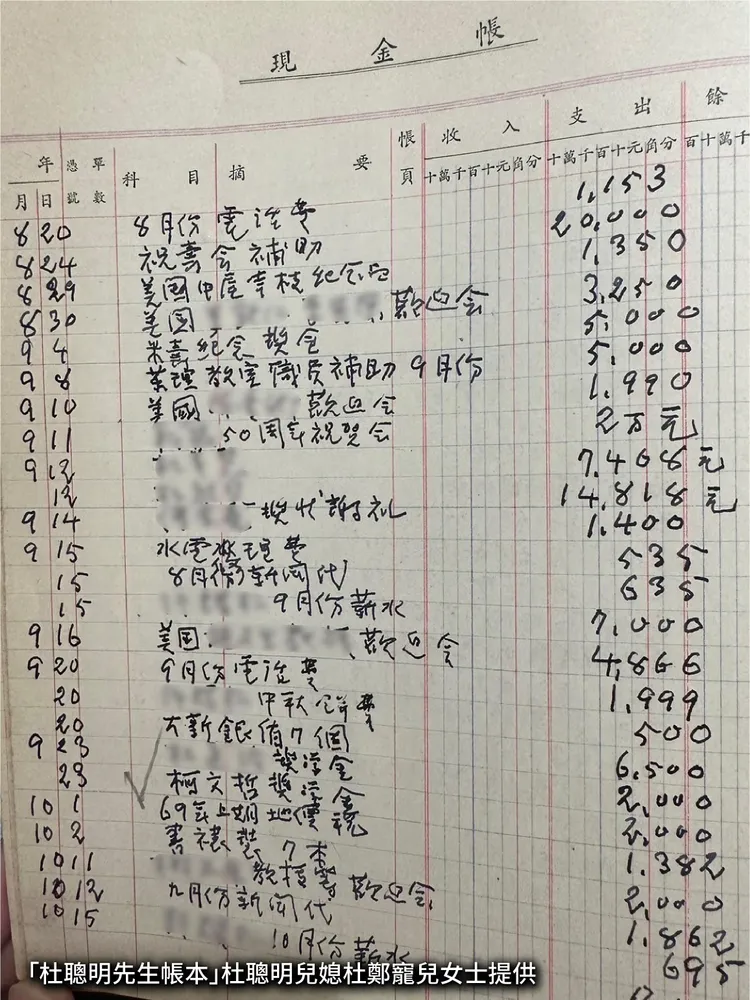 現金帳
年 憑單 科目 摘要 帳 收入 支出 餘
月 日 號數 頁 十萬千百十元角分 十萬千百十元角分 百十萬千
8 20 8月份電話費 1,153
8 24 祝壽会補助 20,000
8 29 美国中屋幸枝紀念品 1,350
8 30 美国 歡迎会 3,250
9 4 米壽紀念獎金 5,000
9 8 藥理教室職員補助9月份 5,000
9 10 美國 歡迎会 1,990
9 11 50周年祝賀会 2万元
9 12 7,408元
12 14,818元
9 14 獎狀謝礼 1,400
9 15 水電 費 535
15 8月份新聞代 635
15 9月份薪水 7,000
9 16 美国 歡迎会 4,866
9 20 9月份電話費 1,999
20 中秋餅費 500
20 大新銀盾7個 6,500
9 23 獎学金 2,000
23 柯文哲獎学金 2,000
10 1 69年上期地價稅 1,382
10 2 書裱裝7本 2,000
10 11 教授等歡迎会 1,862
10 12 九月份新聞代 695
10 15 10月份薪水
「杜聰明先生帳本」杜聰明兒媳杜鄭寵兒女士提供